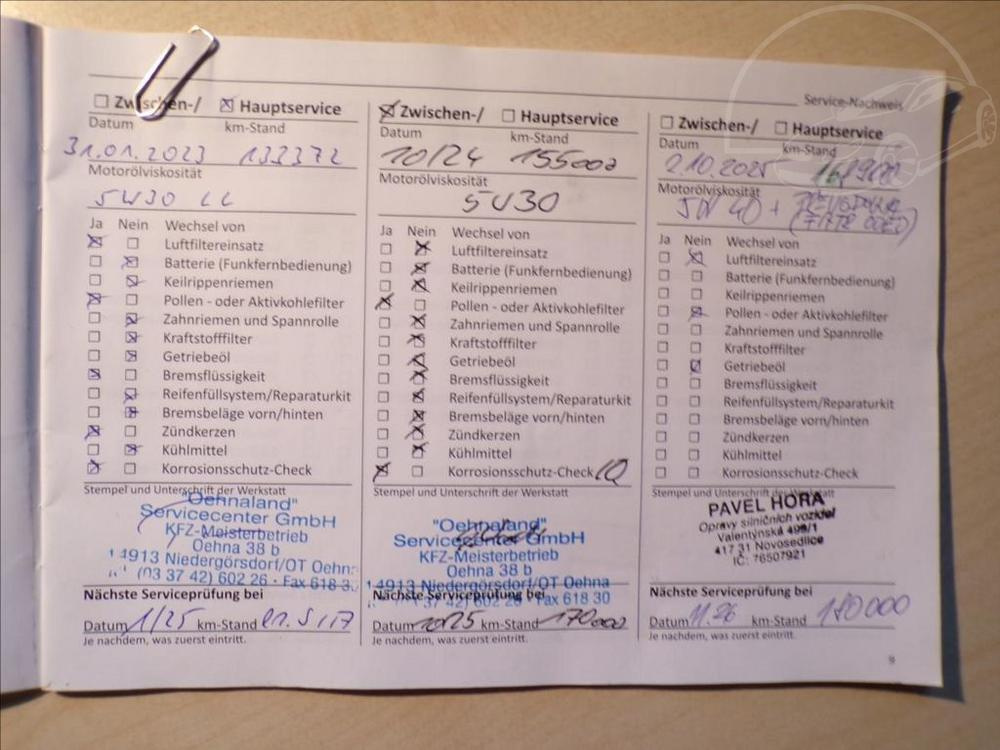 Service-Nachweis
Zwischen-/ Hauptservice
Datum km-Stand
31.01.2023 133372
Motorölviskosität
5W30 LL
Ja Nein Wechsel von
Luftfiltereinsatz
Batterie (Funkfernbedienung)
Keilrippenriemen
Pollen - oder Aktivkohlefilter
Zahnriemen und Spannrolle
Kraftstofffilter
Getriebeöl
Bremsflüssigkeit
Reifenfüllsystem/Reparaturkit
Bremsbeläge vorn/hinten
Zündkerzen
Kühlmittel
Korrosionsschutz-Check
Stempel und Unterschrift der Werkstatt
"Oehnaland"
Servicecenter GmbH
KFZ-Meisterbetrieb
Oehna 38 b
14913 Niedergörsdorf/OT Oehna
(03 37 42) 602 26 · Fax 618 3
Nächste Serviceprüfung bei
Datum 1/25 km-Stand
Je nachdem, was zuerst eintritt.
Zwischen-/ Hauptservice
Datum km-Stand
10/24 155000
Motorölviskosität
5W30
Ja Nein Wechsel von
Luftfiltereinsatz
Batterie (Funkfernbedienung)
Keilrippenriemen
Pollen - oder Aktivkohlefilter
Zahnriemen und Spannrolle
Kraftstofffilter
Getriebeöl
Bremsflüssigkeit
Reifenfüllsystem/Reparaturkit
Bremsbeläge vorn/hinten
Zündkerzen
Kühlmittel
Korrosionsschutz-Check
Stempel und Unterschrift der Werkstatt
"Oehnaland"
Servicecenter GmbH
KFZ-Meisterbetrieb
Oehna 38 b
14913 Niedergörsdorf/OT Oehna
37 42) 602 26 · Fax 618 30
Nächste Serviceprüfung bei
Datum 10/25 km-Stand 170000
Je nachdem, was zuerst eintritt.
Zwischen-/ Hauptservice
Datum km-Stand
2.10.2025
Motorölviskosität
5W 40 +
Ja Nein Wechsel von
Luftfiltereinsatz
Batterie (Funkfernbedienung)
Keilrippenriemen
Pollen - oder Aktivkohlefilter
Zahnriemen und Spannrolle
Kraftstofffilter
Getriebeöl
Bremsflüssigkeit
Reifenfüllsystem/Reparaturkit
Bremsbeläge vorn/hinten
Zündkerzen
Kühlmittel
Korrosionsschutz-Check
Stempel und Unterschrift der Werkstatt
PAVEL HORA
Opravy silničních vozidel
Valentýnská 499/1
417 31 Novosedlice
IČ: 76507921
Nächste Serviceprüfung bei
Datum 11.26 km-Stand 180000
Je nachdem, was zuerst eintritt.
9